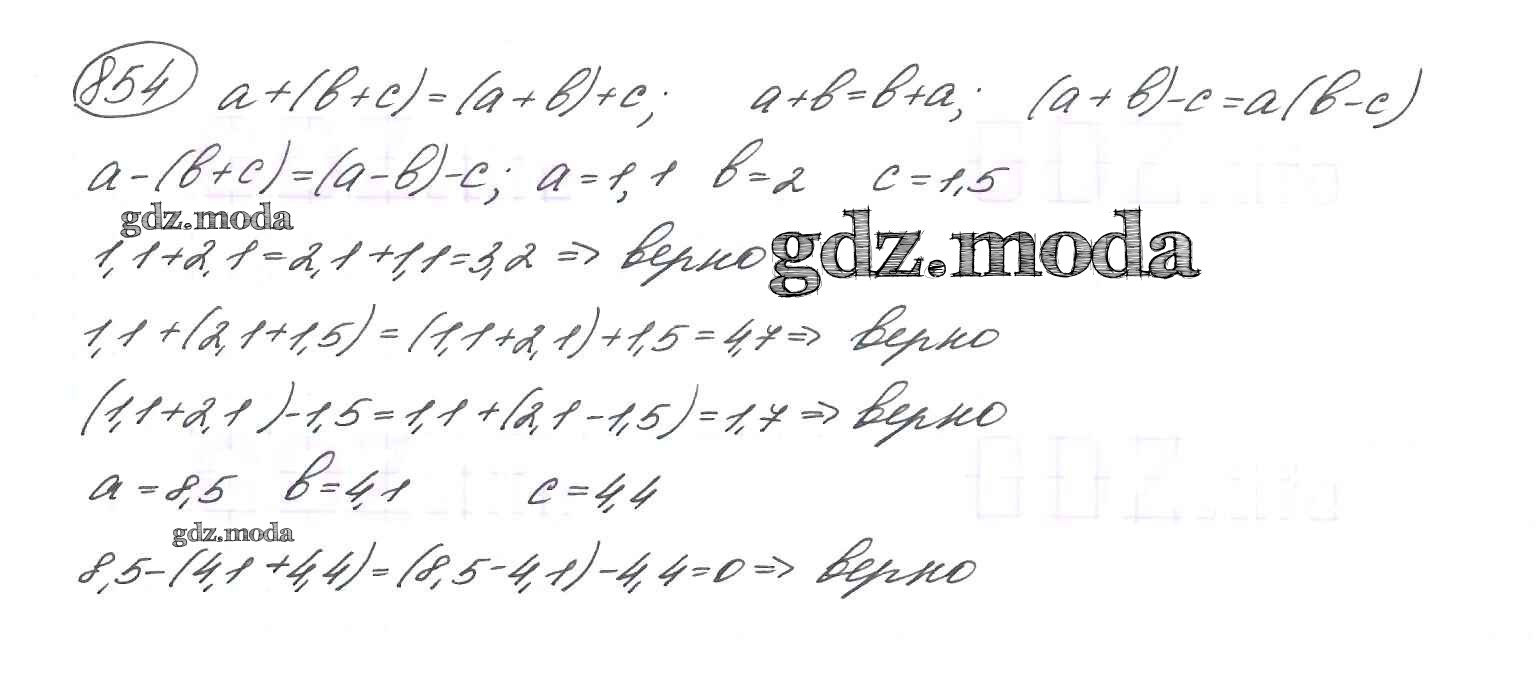 854 a+(в+с)=(а+в)+с; а+в=в+а; (а+в)-с=а(в-с)
а-(в+с)=(а-в)-с; а=1,1 в=2 с=1,5
gdz.moda
1,1+2,1=2,1+1,1=3,2 => верно gdz.moda
1,1+(2,1+1,5)=(1,1+2,1)+1,5=4,7=> верно
(1,1+2,1)-1,5=1,1+(2,1-1,5)=1,7=> верно
а=8,5 в=4,1 с=4,4
gdz.moda
8,5-(4,1+4,4)=(8,5-4,1)-4,4=0=> верно